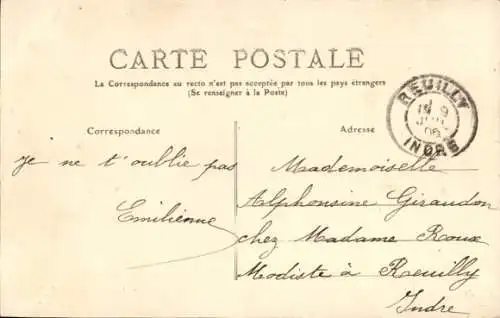 CARTE POSTALE
La Correspondance au recto n'est pas acceptée par tous les pays étrangers
(Se renseigner à la Poste)
REUILLY
9
INDRE
Correspondance
Adresse
je ne t'oublie pas
Emilienne
Mademoiselle
Alphonsine Giraudon
chez Madame Roux
Modiste à Reuilly
Indre